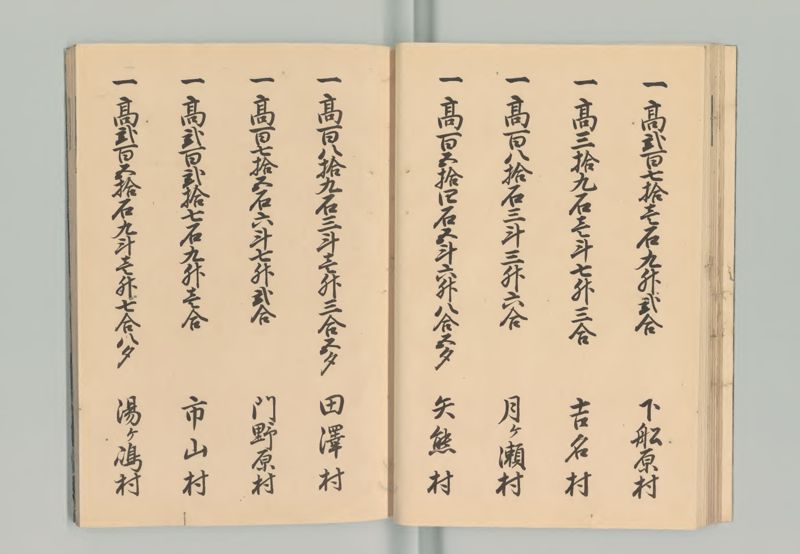 一高弐百七拾壱石九升弐合 下舩原村
一高三拾九石壱斗七升三合 吉名村
一高百八拾石三斗三升六合 月ヶ瀬村
一高百五拾四石五斗六升八合五夕 矢熊村
一高百八拾九石三斗壱升三合五夕 田澤村
一高百七拾五石六斗七升弐合 門野原村
一高弐百弐拾七石九升壱合 市山村
一高弐百五拾石九斗壱升七合八夕 湯ヶ嶋村